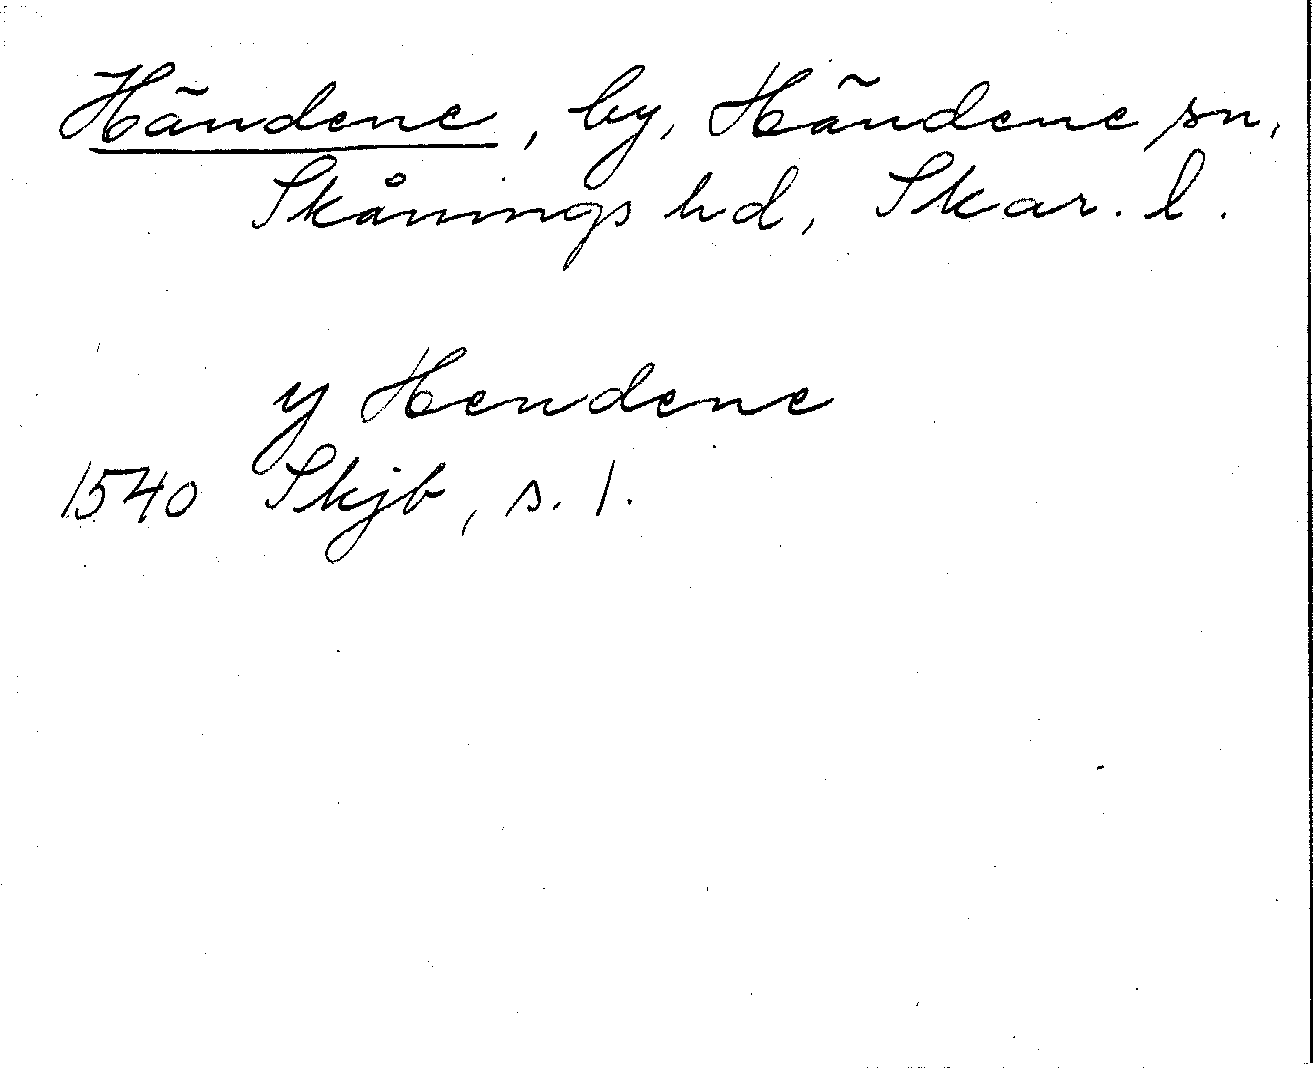 Händene, by, Händene sn,
Skånings hd, Skar. l.
y Hendene
1540 Skjb, s. 1.